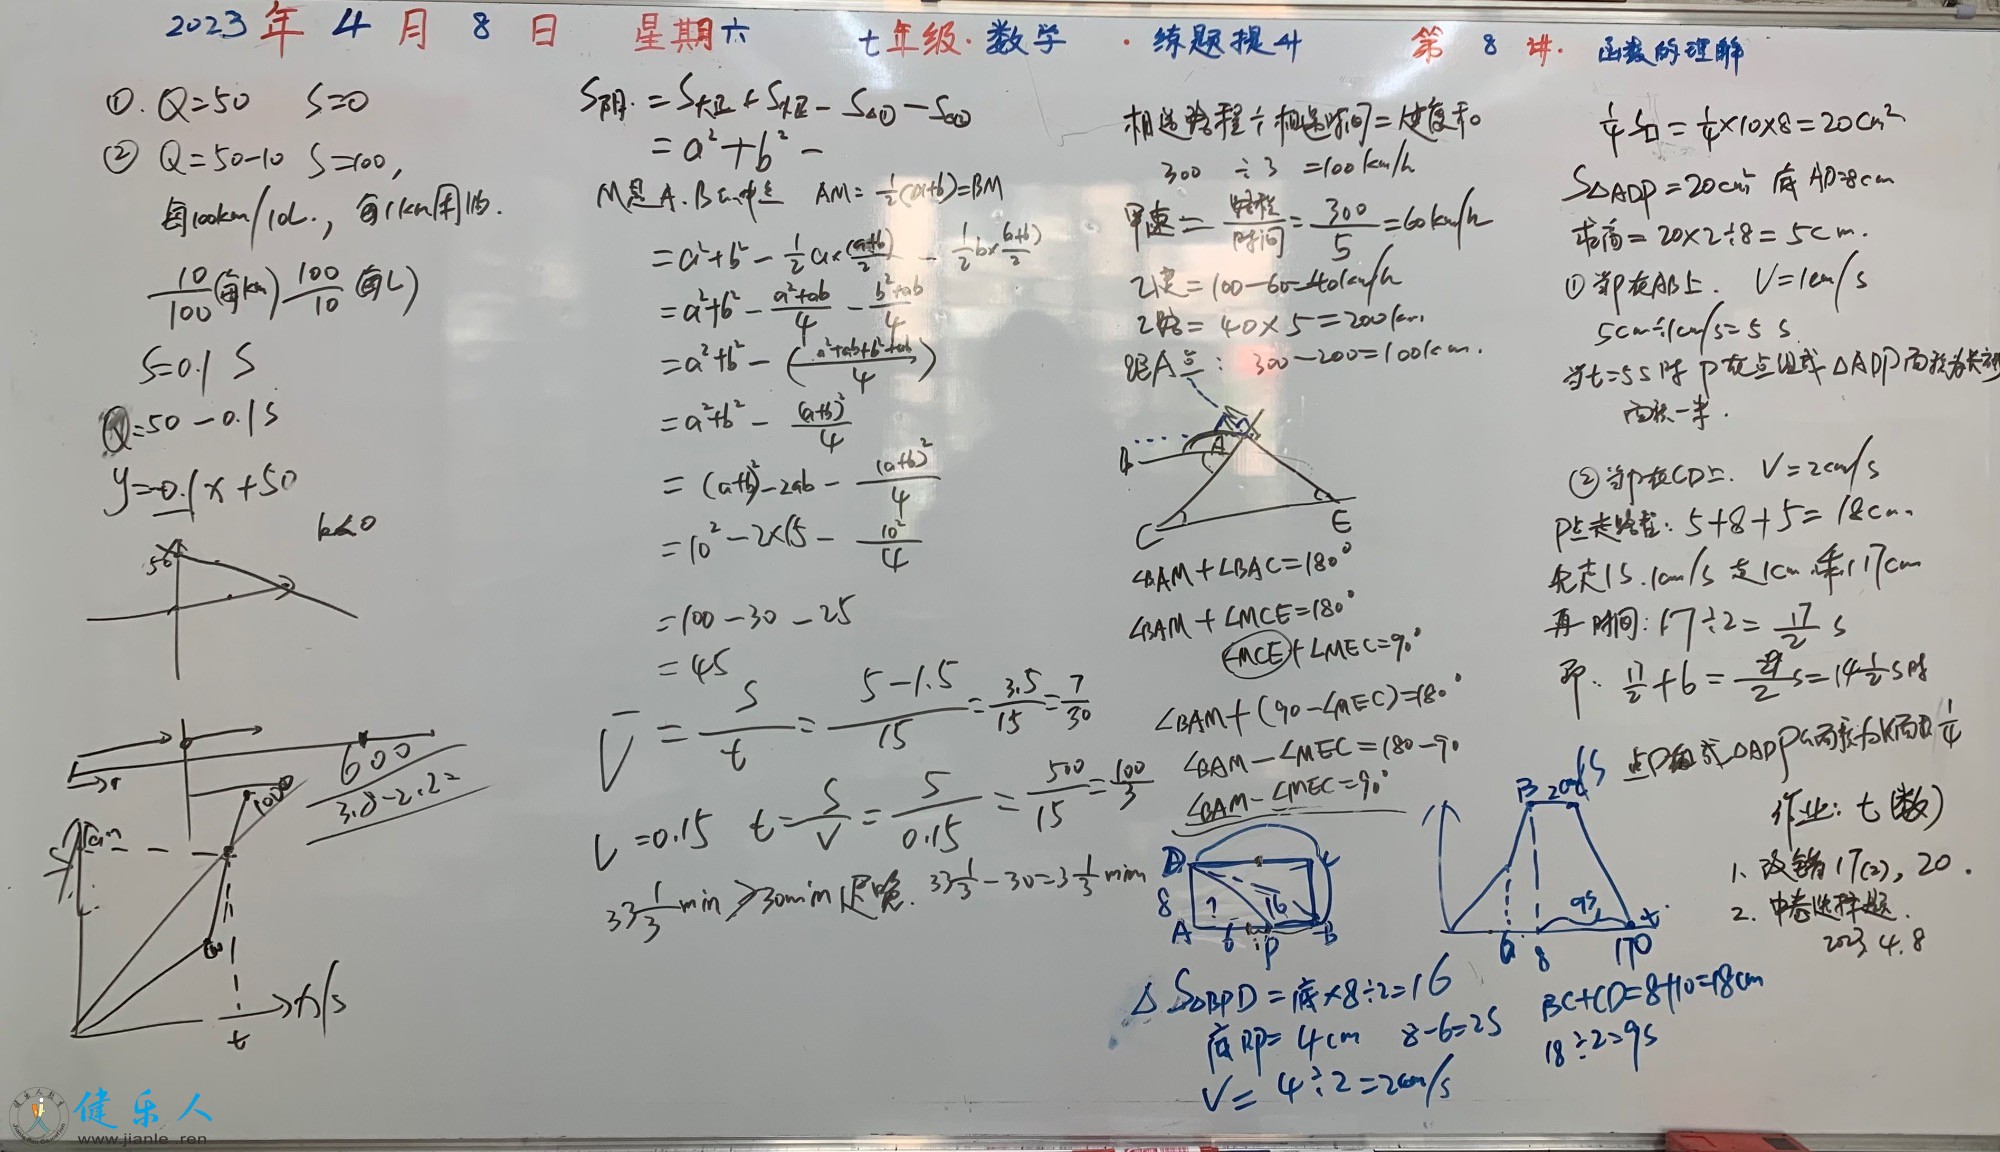 2023年4月8日 星期六 七年级·数学 ·练题提升 第8讲. 函数的理解
①. Q=50 S=0
② Q=50-10 S=100,
每100km/10L., 每1km用油.
10/100(每km) 100/10(每L)
S=0.1 S
Q=50-0.1S
y=-0.1x+50
k<0
50
600
3.8-2.2=
1000
t
S阴.=S大正+S小正-S△①-S△②
=a²+b²-
M是A.B的中点 AM=½(a+b)=BM
=a²+b²-½a×(a+b)/2-½b×(a+b)/2
=a²+b²-(a²+ab)/4-(b²+ab)/4
=a²+b²-((a²+ab+b²+ab)/4)
=a²+b²-(a+b)²/4
=(a+b)²-2ab-(a+b)²/4
=10²-2×15-10²/4
=100-30-25
=45
V=S/t=(5-1.5)/15=3.5/15=7/30
V=0.15 t=S/V=5/0.15=500/15=100/3
33⅓min>30min 迟晚. 33⅓-30=3⅓min
相遇路程÷相遇时间=速度和
300÷3=100km/h
甲速=路程/时间=300/5=60km/h
乙速=100-60=40km/h
乙路=40×5=200km.
距A点: 300-200=100km.
A
C E
∠BAM+∠BAC=180°
∠BAM+∠MCE=180°
∠MCE+∠MEC=90°
∠BAM+(90-∠MEC)=180°
∠BAM-∠MEC=180-90
∠BAM-∠MEC=90°
D C
8 ? 16
A 6 P B
△S△BPD=底×8÷2=16
底BP=4cm 8-6=2S
V=4÷2=2cm/s
¼S口=¼×10×8=20cm²
S△ADP=20cm² 底AD=8cm
求高=20×2÷8=5cm.
①当P在AB上. V=1cm/s
5cm÷1cm/s=5 s
当t=5s时 P在点组成△ADP面积为长方形
面积一半.
②当P在CD上. V=2cm/s
P点走路程: 5+8+5=18cm.
先走1S.1cm/s 走1cm 余17cm
再时间:17÷2=17/2 s
即. 17/2+6=29/2s=14½s时
点P组成△ADP的面积为长面积¼
B 2cm/s
9s
a 8 17 0 t
BC+CD=8+10=18cm
18÷2=9s
作业: 七(数)
1. 改错 17(2), 20.
2. 中卷选择题.
2023.4.8
健乐人
www.jianle.ren